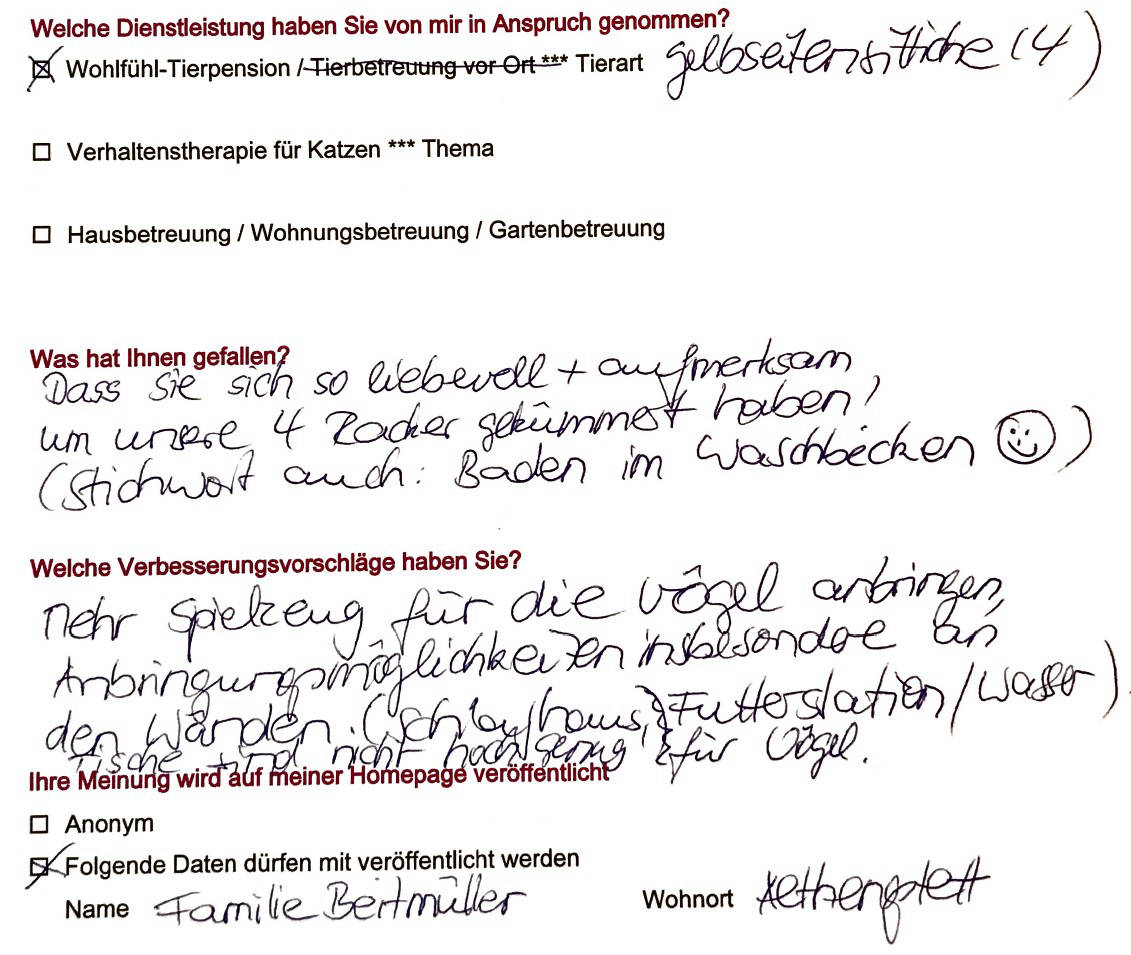 Welche Dienstleistung haben Sie von mir in Anspruch genommen?
☒ Wohlfühl-Tierpension / ~~Tierbetreuung vor Ort~~ *** Tierart gelbseitensittiche (4)
☐ Verhaltenstherapie für Katzen *** Thema
☐ Hausbetreuung / Wohnungsbetreuung / Gartenbetreuung
Was hat Ihnen gefallen?
Dass Sie sich so liebevoll + aufmerksam
um unsere 4 Racker gekümmert haben!
(Stichwort auch: Baden im Waschbecken ☺)
Welche Verbesserungsvorschläge haben Sie?
mehr Spielzeug für die Vögel anbringen,
Anbringungsmöglichkeiten insbesondere an
den Wänden. (Schlafhaus, Futterstation/Wasser).
Tische sind nicht hoch genug für Vögel.
Ihre Meinung wird auf meiner Homepage veröffentlicht
☐ Anonym
☒ Folgende Daten dürfen mit veröffentlicht werden
Name Familie Beitmüller Wohnort